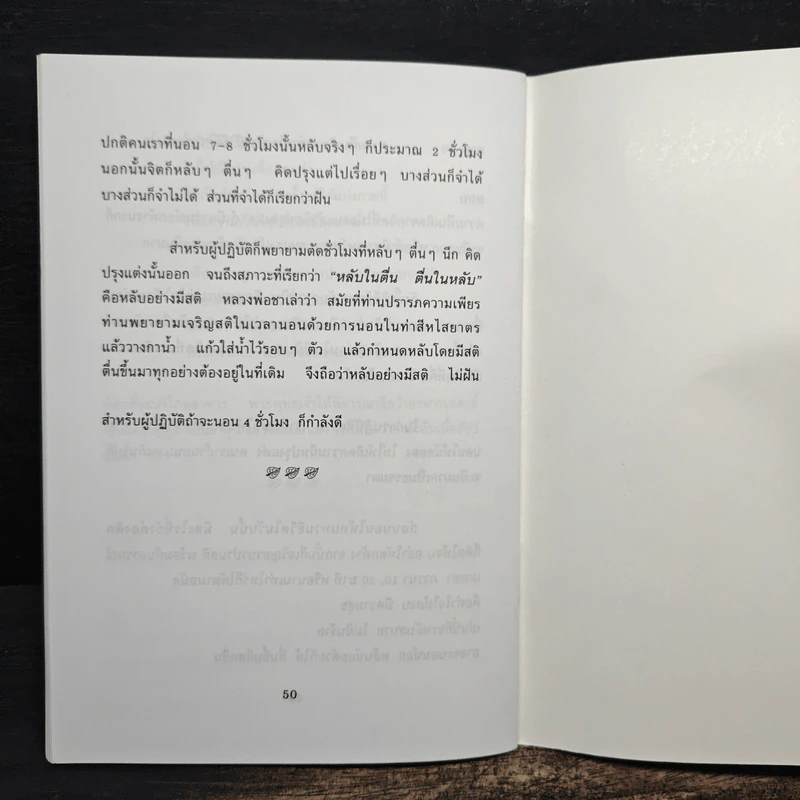 ปกติคนเราที่นอน 7-8 ชั่วโมงนั้นหลับจริงๆ ก็ประมาณ 2 ชั่วโมง
นอกนั้นจิตก็หลับๆ ตื่นๆ คิดปรุงแต่ไปเรื่อยๆ บางส่วนก็จำได้
บางส่วนก็จำไม่ได้ ส่วนที่จำได้ก็เรียกว่าฝัน
สำหรับผู้ปฏิบัติก็พยายามตัดชั่วโมงที่หลับๆ ตื่นๆ นึก คิด
ปรุงแต่งนั้นออก จนถึงสภาวะที่เรียกว่า “หลับในตื่น ตื่นในหลับ”
คือหลับอย่างมีสติ หลวงพ่อชาเล่าว่า สมัยที่ท่านปรารภความเพียร
ท่านพยายามเจริญสติในเวลานอนด้วยการนอนในท่าสีหไสยาตร
แล้ววางกาน้ำ แก้วใส่น้ำไว้รอบๆ ตัว แล้วกำหนดหลับโดยมีสติ
ตื่นขึ้นมาทุกอย่างต้องอยู่ในที่เดิม จึงถือว่าหลับอย่างมีสติ ไม่ฝัน
สำหรับผู้ปฏิบัติถ้าจะนอน 4 ชั่วโมง ก็กำลังดี
50